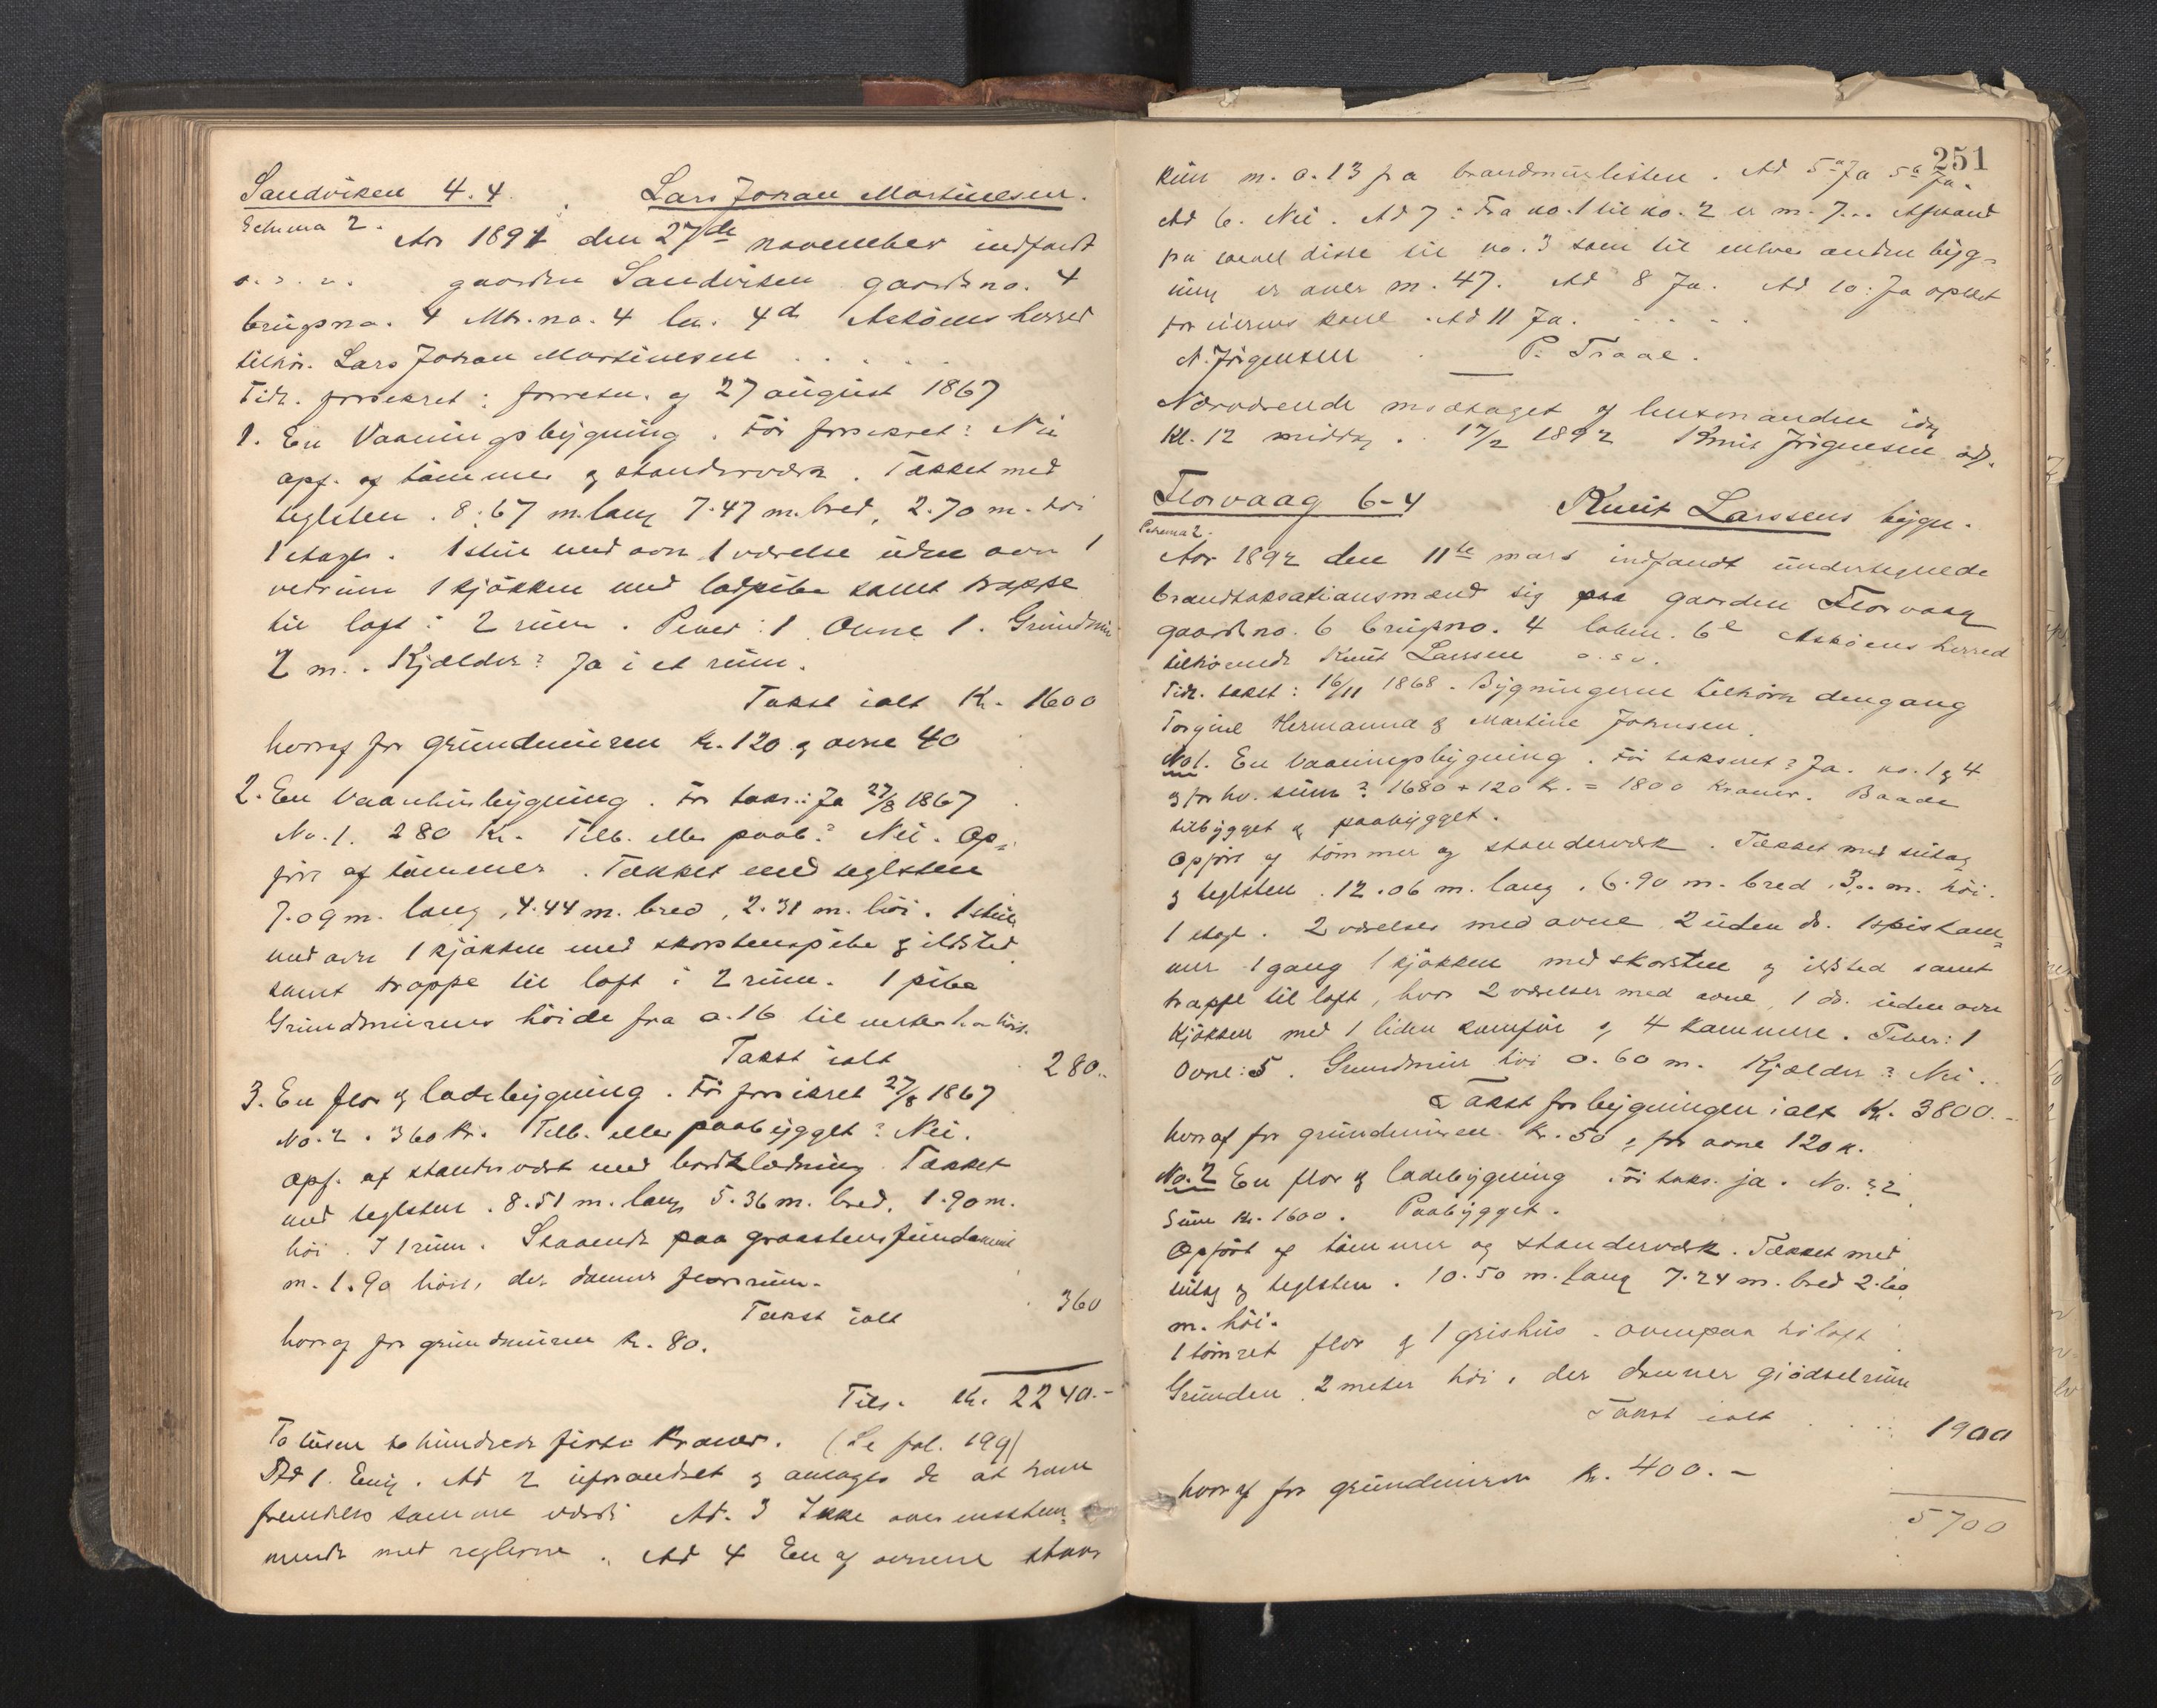 Sandviken 4.4. Lars Johan Martinesen.
Schema 2. Aar 1891 den 27de november indfandt
o.s.v. gaarden Sandviken gaardsno. 4
brugsno. 4 Mtr.no. 4 ln. 4d Askøens herred
tilhør. Lars Johan Martinesen . . . . .
Tidl. forsikret: forretn. af 27 august 1867
1. En Vaaningsbygning. Før forsikret? Nei
opf. af tømmer og standerværk. Tækket med
teglsten. 8.67 m. lang 7.47 m. bred, 2.70 m. høi
1 etage. 1 stue med ovn 1 værelse uden ovn 1
vedrum 1 kjøkken med ladpibe samt trappe
til loft i 2 rum. Piber: 1 Ovne 1. Grundmur
2 m. Kjælder? Ja i et rum.
Takst ialt Kr. 1600
hvoraf for grundmuren kr. 120 og ovne 40
2. En Vaanhusbygning. Før takst: Ja 27/8 1867
No. 1. 280 Kr. Tilb. eller paab.? Nei. Op-
ført af tømmer. Tækket med teglsten
7.09 m. lang, 4.44 m. bred, 2.31 m. høi. 1 stue
med ovn 1 kjøkken med skorstenspibe og ildsted
samt trappe til loft i 2 rum. 1 pibe
Grundmurens høide fra 0.16 til
Takst ialt 280..
3. En flor og ladebygning. Før forsikret 27/8 1867
No. 2. 360 Kr. Tilb. eller paabygget? Nei.
Opf. af standerværk med bordklædning. Tækket
med teglsten. 8.51 m. lang 5.36 m. bred, 1.90 m.
høi. I 1 rum. Staaende paa graastensfundament
m. 1.90 høit, der danner florrum.
Takst ialt 360
hvoraf for grundmuren kr. 80.
Tils. Kr. 2240.-
To tusen to hundrede firti Kroner. (Se fol. 199)
Ad 1. Enig. Ad 2 uforandret og antages de at have
fremdeles samme værdi Ad. 3 Ikke overensstem-
mende med reglerne. Ad 4 En af ovnene staar
251
kun m. 0.13 fra brandmurlisten. Ad 5 a Ja 5 b Ja.
Ad 6. Nei. Ad 7: Fra no. 1 til no. 2 er m. 7... Afstand
fra saavel disse til no. 3 som til enhver anden byg-
ning er over m. 47. Ad 8 Ja. Ad 10: Ja oplæst
for eierens kone. Ad 11 Ja. . . . .
N. Jørgensen P. Traae.
Nærværende modtaget af lensmanden idag
Kl. 12 middag. 17/2 1892 Knut Jørgensen
Florvaag 6-4 Knut Larssens bygn.
Schema 2.
Aar 1892 den 11te mars indfandt undertegnede
brandtaksationsmænd sig paa gaarden Florvaag
gaardsno. 6 brugsno. 4 løben. 6e Askøens herred
tilhørende Knut Larssen o.s.v.
Tidl. takst: 16/11 1868. Bygningerne tilhørte dengang
Torgine Hermanna & Martine Johnsen.
No 1. En Vaaningsbygning. Før takseret? Ja. no. 1 og 4
og for hv. sum? 1680 + 120 Kr. = 1800 Kroner. Baade
tilbygget og paabygget.
Opført af tømmer og standerværk. Tækket med sutag
og teglsten. 12.06 m. lang, 6.90 m. bred 3.. m. høi.
1 etage. 2 værelser med ovne 2 uden do. 1 spiskam-
mer 1 gang 1 kjøkken med skorsten og ildsted samt
trappe til loft, hvor 2 værelser med ovne, 1 do. uden ovn
kjøkken med 1 liden komfur og 4 kammere. Piber: 1
Ovne: 5. Grundmur høi 0.60 m. Kjælder? Nei.
Takst for bygningen ialt Kr. 3800.-
hvoraf for grundmuren Kr. 50, for ovne 120 K.
No. 2 En flor og ladebygning. Før taks. ja. No. ? 2
Sum kr. 1600. Paabygget.
Opført af tømmer og standerværk. Tækket med
sutag og teglsten. 10.50 m. lang 7.24 m. bred 2.60
m. høi.
1 tømret flor og 1 grishus. ovenpaa høloft
Grunden 2 meter høi, der danner gjødselrum
Takst ialt . . . 1900
hvoraf for grundmuren kr. 400.-
5700